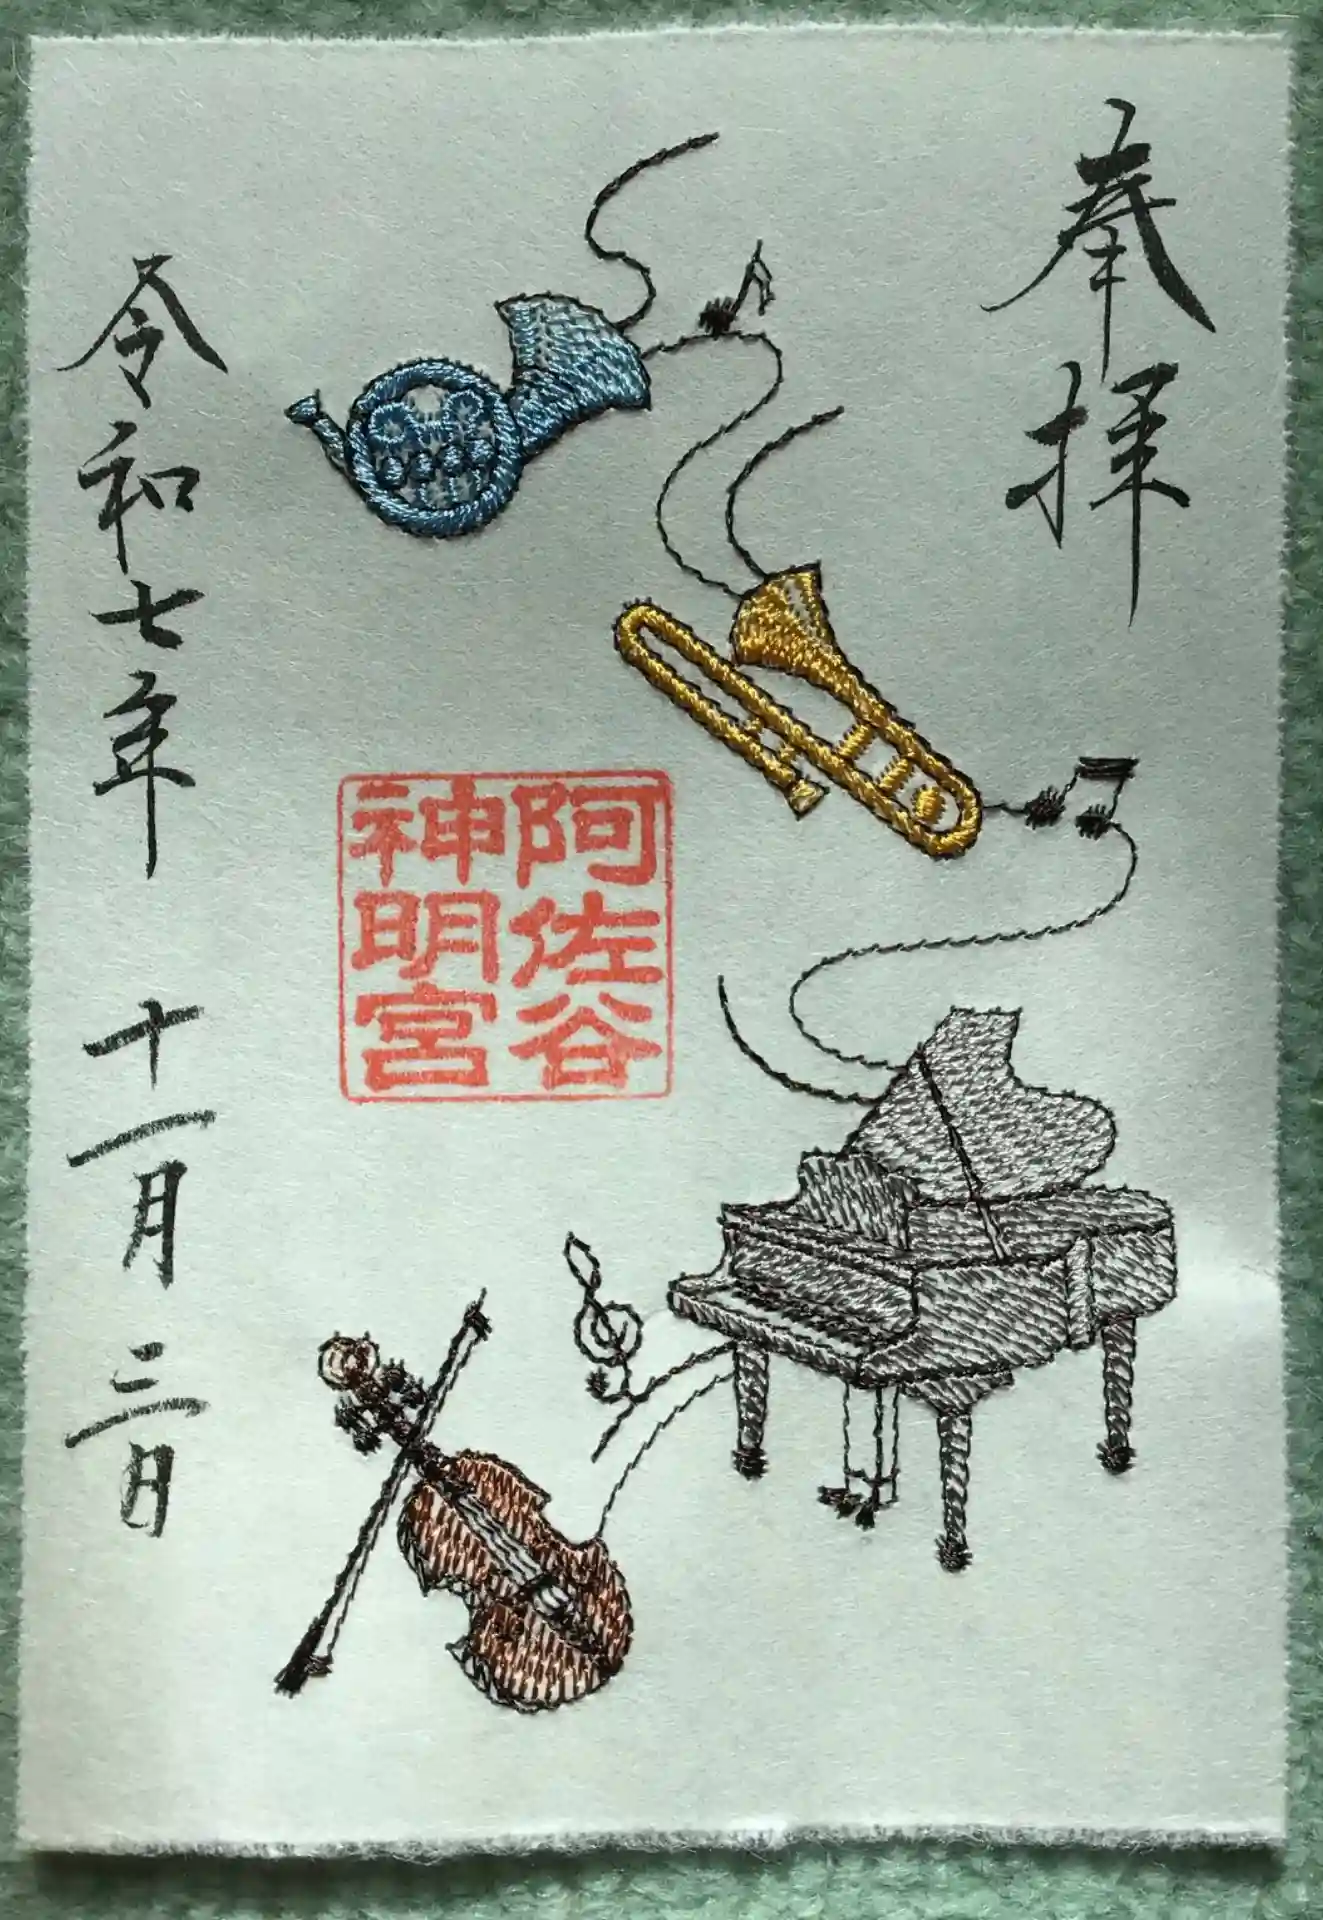 奉拝
阿佐谷
神明宮
令和七年十一月三日